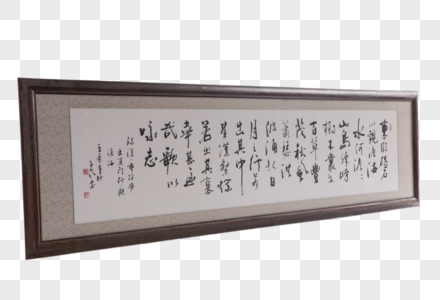 東臨碣石
以觀滄海
水何澹澹
山島竦峙
樹木叢生
百草豐
茂秋風
蕭瑟洪
波涌起日
月之行若
出其中
星漢燦爛
若出其裏
幸甚至
哉歌以
咏志
出夏門行觀
滄海